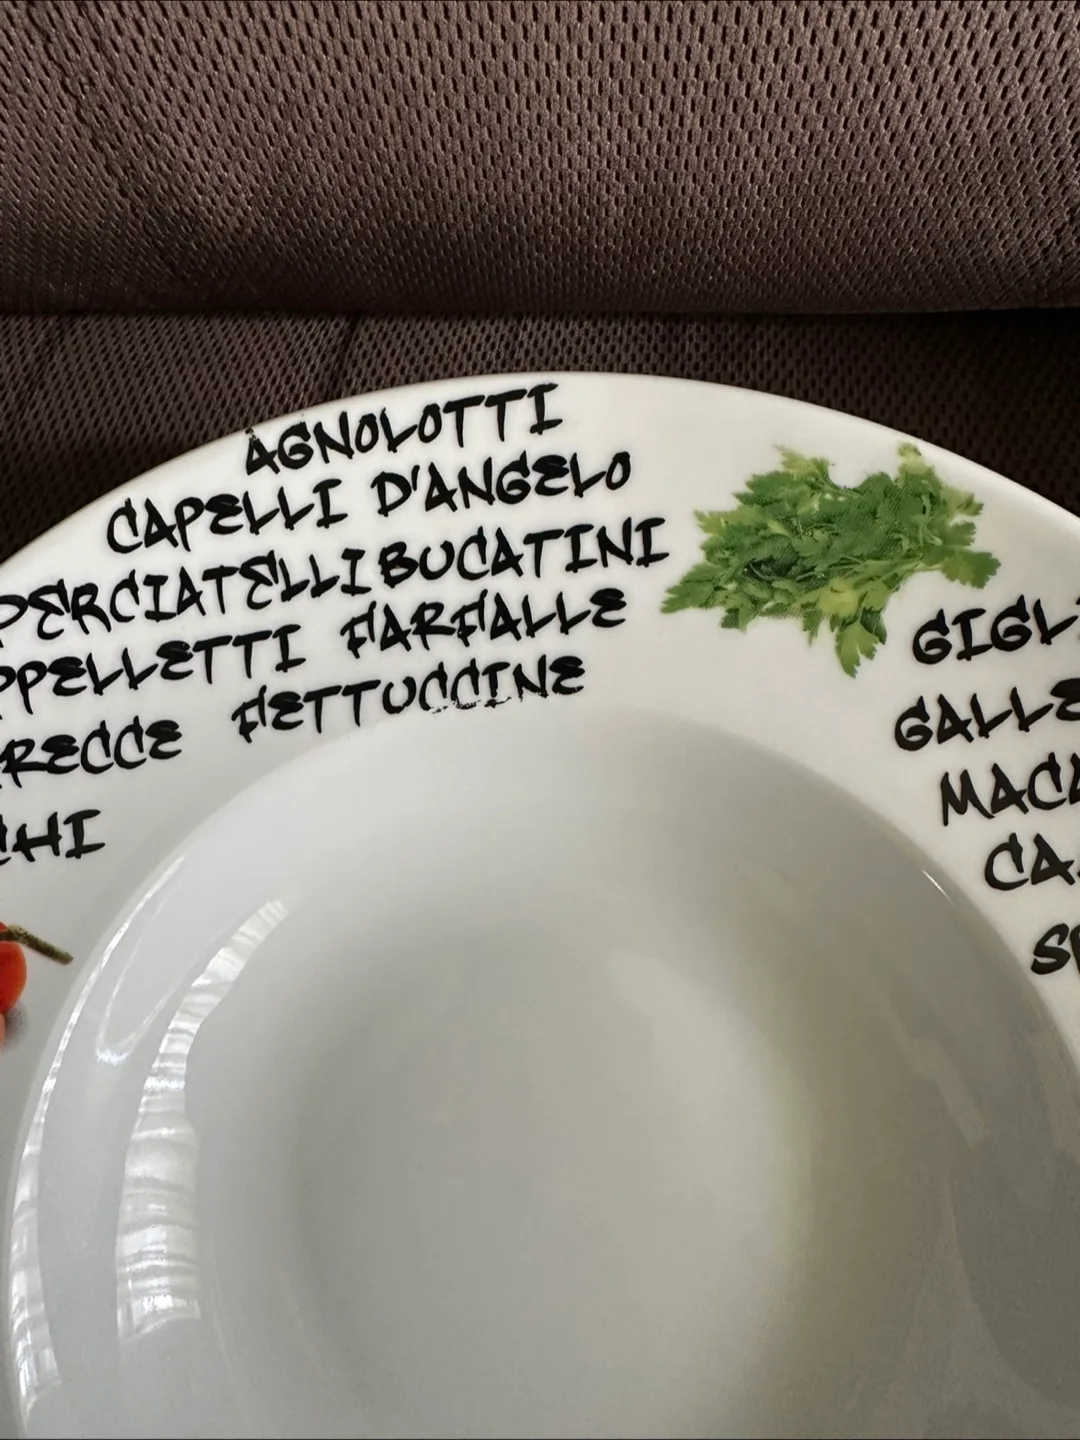 AGNOLOTTI
CAPELLI D'ANGELO
PERCIATELLI BUCATINI
PPELLETTI FARFALLE
RECCE FETTUCCINE
CHI
GIGLI
GALLE
MACA
CA
SP